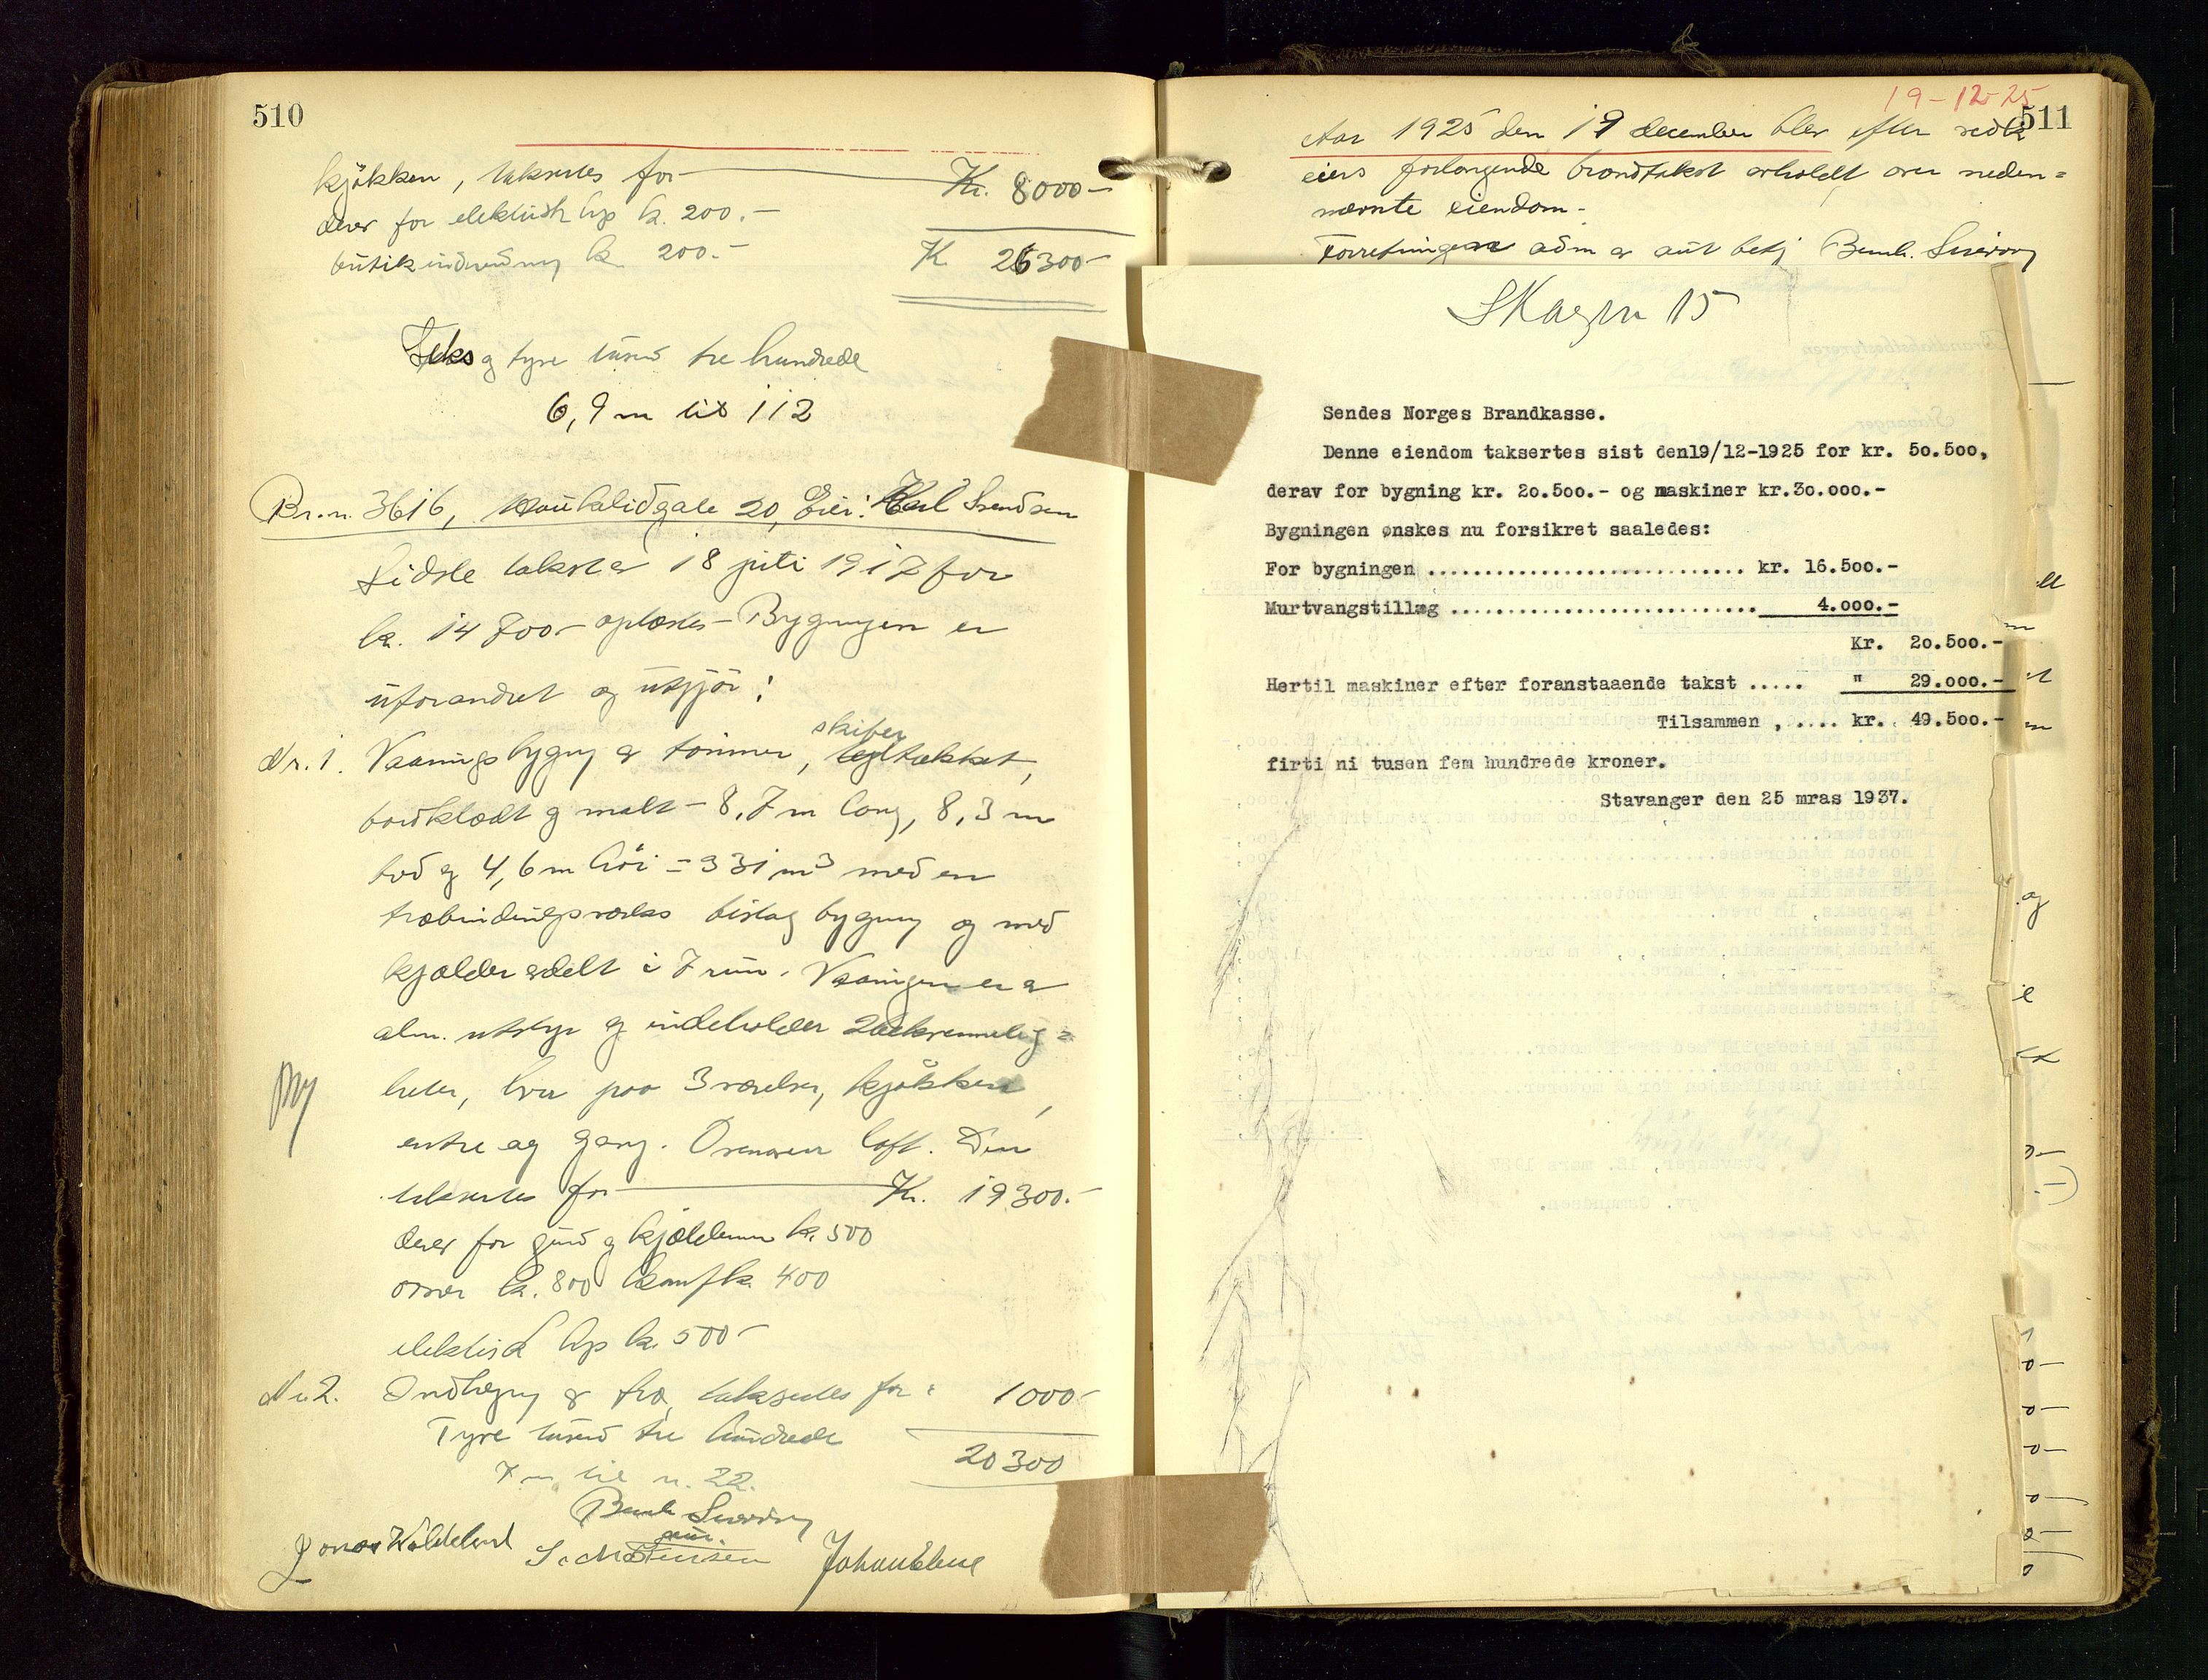 510
kjøkken, takseres for Kr. 8000-
derav for elektrisk lys kr. 200.-
butikindredning kr. 200.- K 26300-
Seks og tyve tusind tre hundrede
6,9 m til 112
Br.nr. 3616, Haukeligate 20, Eier: Karl Svendsen
Sidste takst er 18 juli 1917 for
kr. 14700- oplæstes - Bygningen er
uforandret og utgjør:
Nr. 1. Vaaningsbygning av tømmer, skifertækket,
bordklædt og malt - 8,7 m lang, 8,3 m
bred og 4,6 m høi = 331 m3 med en
træbindingsverks bislag bygning og med
kjælder avdelt i 7 rum. Vaaningen er av
alm. utstyr og indeholder 2 bekvemmelig=
heter, hver paa 3 værelser, kjøkken,
entre og gang. Ovenover loft. Den
takseres for Kr. 19300.-
derav for grund og kjældermur kr. 500
ovner kr. 800 komf kr. 400
elektrisk lys kr. 500-
Nr. 2. Indhegning av træ, takseres for: 1000-
Tyve tusind tre hundrede
20300
7 m til nr. 22.
Jonas Kaldeland
Johan Elene
19-12-25
511
Aar 1925 den 19 december blev efter vedk
eiers forlangende brandtakst avholdt over neden=
nævnte eiendom-
Forretningen adm av aut betj
Skagen 15
Sendes Norges Brandkasse.
Denne eiendom taksertes sist den19/12-1925 for kr. 50.500,
derav for bygning kr. 20.500.- og maskiner kr.30.000.-
Bygningen ønskes nu forsikret saaledes:
For bygningen ............................ kr. 16.500.-
Murtvangstillæg ........................... 4.000.-
Kr. 20.500.-
Hertil maskiner efter foranstaaende takst ..... " 29.000.-
Tilsammen ,.... kr. 49.500.-
firti ni tusen fem hundrede kroner.
Stavanger den 25 mras 1937.